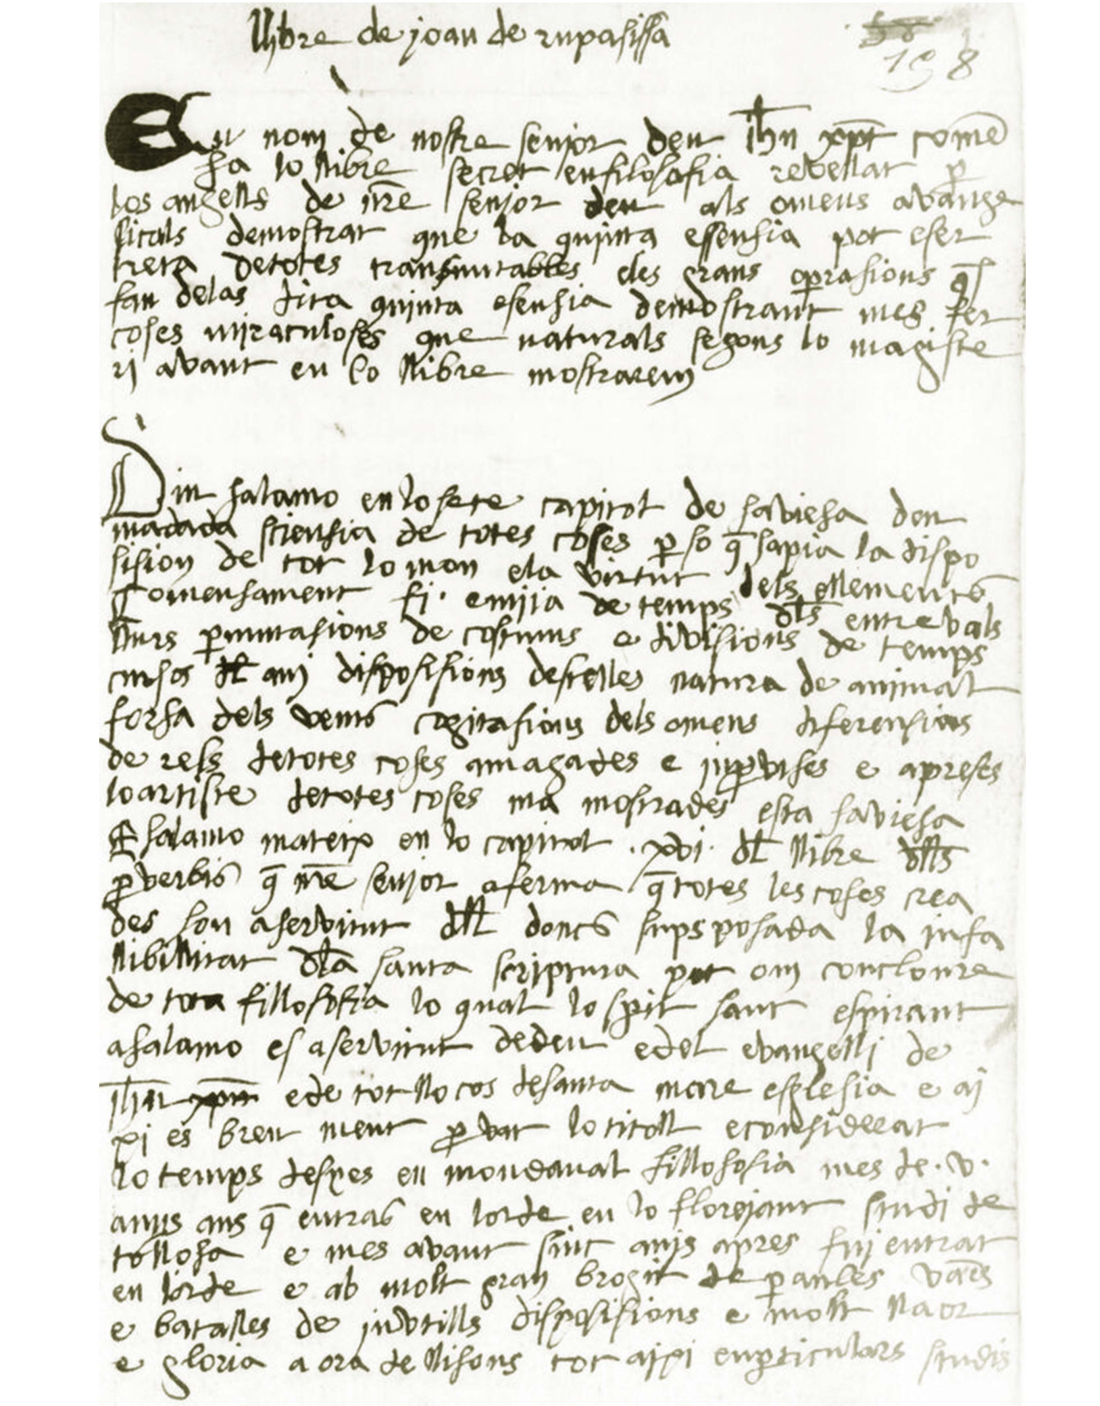 llibre de joan de rupasissa
198
En nom de nostre senjor deu ihu xpt comē
sa lo llibre secret en filosofia revellat p
los angells de nre senjor deu als omens avange
licals demostrat que la quinta essensia pot eser
treta de totes transmutables e les grans oprasions q̄
fan de las dita quinta esensia demostrant mes fer
coses miraculoses que naturals segons lo magiste
ri avant en lo llibre mostrarem
Diu salamo en lo sete capitol de saviesa deu
ma dada siensia de totes coses p so q̄ sapia la dispo
sision de tot lo mon e la virtut dels ellements
comensament fi · e mija de temps dls entrevals
llurs pmutasions de costums e divisions de temps
cursos dl anj disposisions d estelles natura de animal
forsa dels vents cogitasions dels omens diferensias
de rels de totes coses amagades e inprovises e apreses
lo artiste de totes coses ma mostrades esta saviesa
E salamo mateix en lo capitol · xvi · dl llibre dlls
pverbis q̄ nre senjor aferma q̄ totes les coses crea
des son a servitut dll doncs supsposada la infa
llibillitat dla santa scriptura pot om concloure
de tota fillosofia lo qual lo spit sant espirant
a salamo es a servitut de deu e del evangelli de
ihu xpt e de tot llo cos de santa mare esglesia e aj
xi es breu ment pvat lo titoll e considerat
lo temps despes en mondanal fillosofia mes de · v ·
anys ans q̄ entras en lorde en lo florejant studi de
tollosa e mes avant sinc anjs apres fuj entrat
en lorde e ab molt gran brogit de paules vans
e batalles de inutills disposisions e molt llaor
e gloria a ora de llisons tot ajxi en pticulars studis